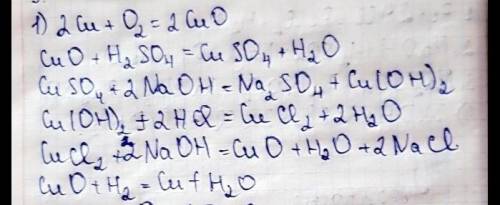 1) 2Cu + O₂ = 2CuO
CuO + H₂SO₄ = CuSO₄ + H₂O
CuSO₄ + 2NaOH = Na₂SO₄ + Cu(OH)₂
Cu(OH)₂ + 2HCl = CuCl₂ + 2H₂O
CuCl₂ + 2NaOH = CuO + H₂O + 2NaCl.
CuO + H₂ = Cu + H₂O